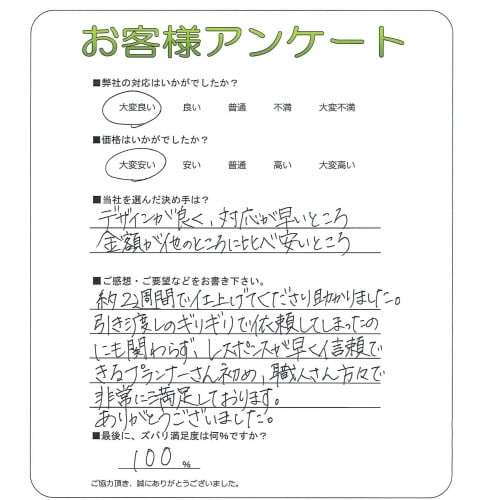 お客様アンケート
■弊社の対応はいかがでしたか?
大変良い 良い 普通 不満 大変不満
■価格はいかがでしたか?
大変安い 安い 普通 高い 大変高い
■当社を選んだ決め手は?
デザインが良く、対応が早いところ
金額が他のところに比べ安いところ
■ご感想・ご要望などをお書き下さい。
約2週間で仕上げてくださり助かりました。
引き渡しのギリギリで依頼してしまったの
にも関わらず、レスポンスが早く信頼で
きるプランナーさん初め、職人さん方々で
非常に満足しております。
ありがとうございました。
■最後に、ズバリ満足度は何%ですか?
100 %
ご協力頂き、誠にありがとうございました。